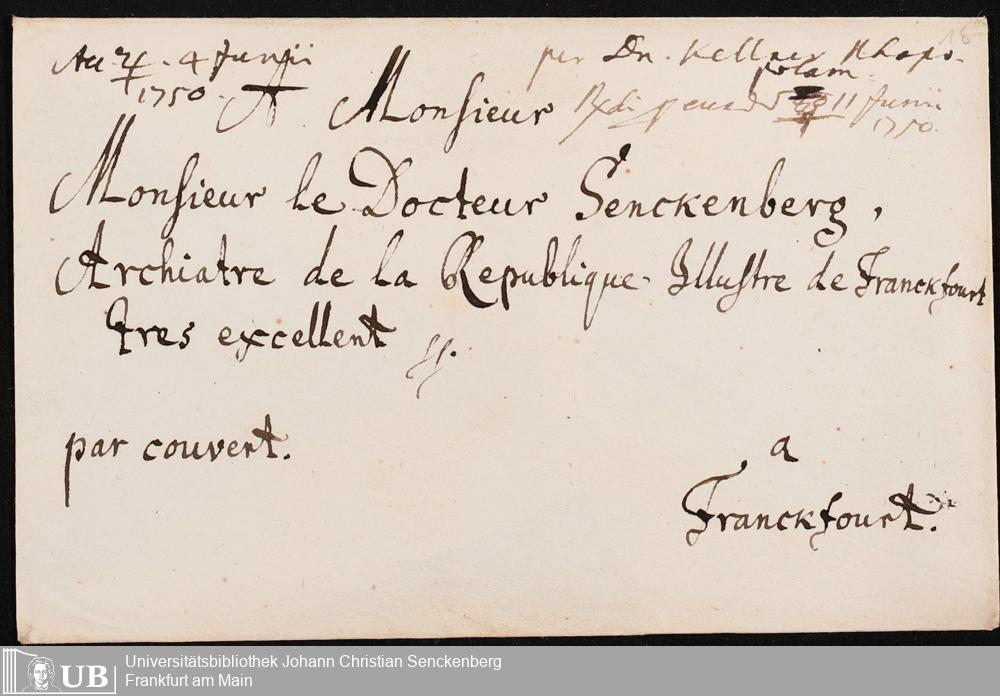 18
per Dn. Kellner Rhapo-
polam.
4 Junii
1750.
11 Junii
1750.
A Monsieur
Monsieur le Docteur Senckenberg,
Archiatre de la Republique Illustre de Franckfourt
tres excellent
par couvert.
a
Franckfourt.
UB
Universitätsbibliothek Johann Christian Senckenberg
Frankfurt am Main